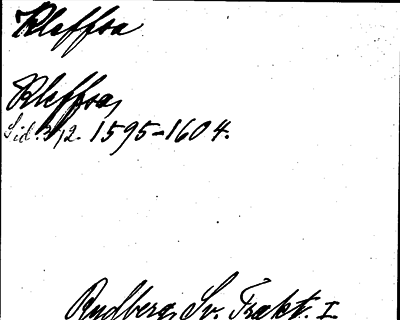 Kleffsa
Kleffsa,
Sid. 312. 1595-1604.
Rydberg, Sv. Trakt. I